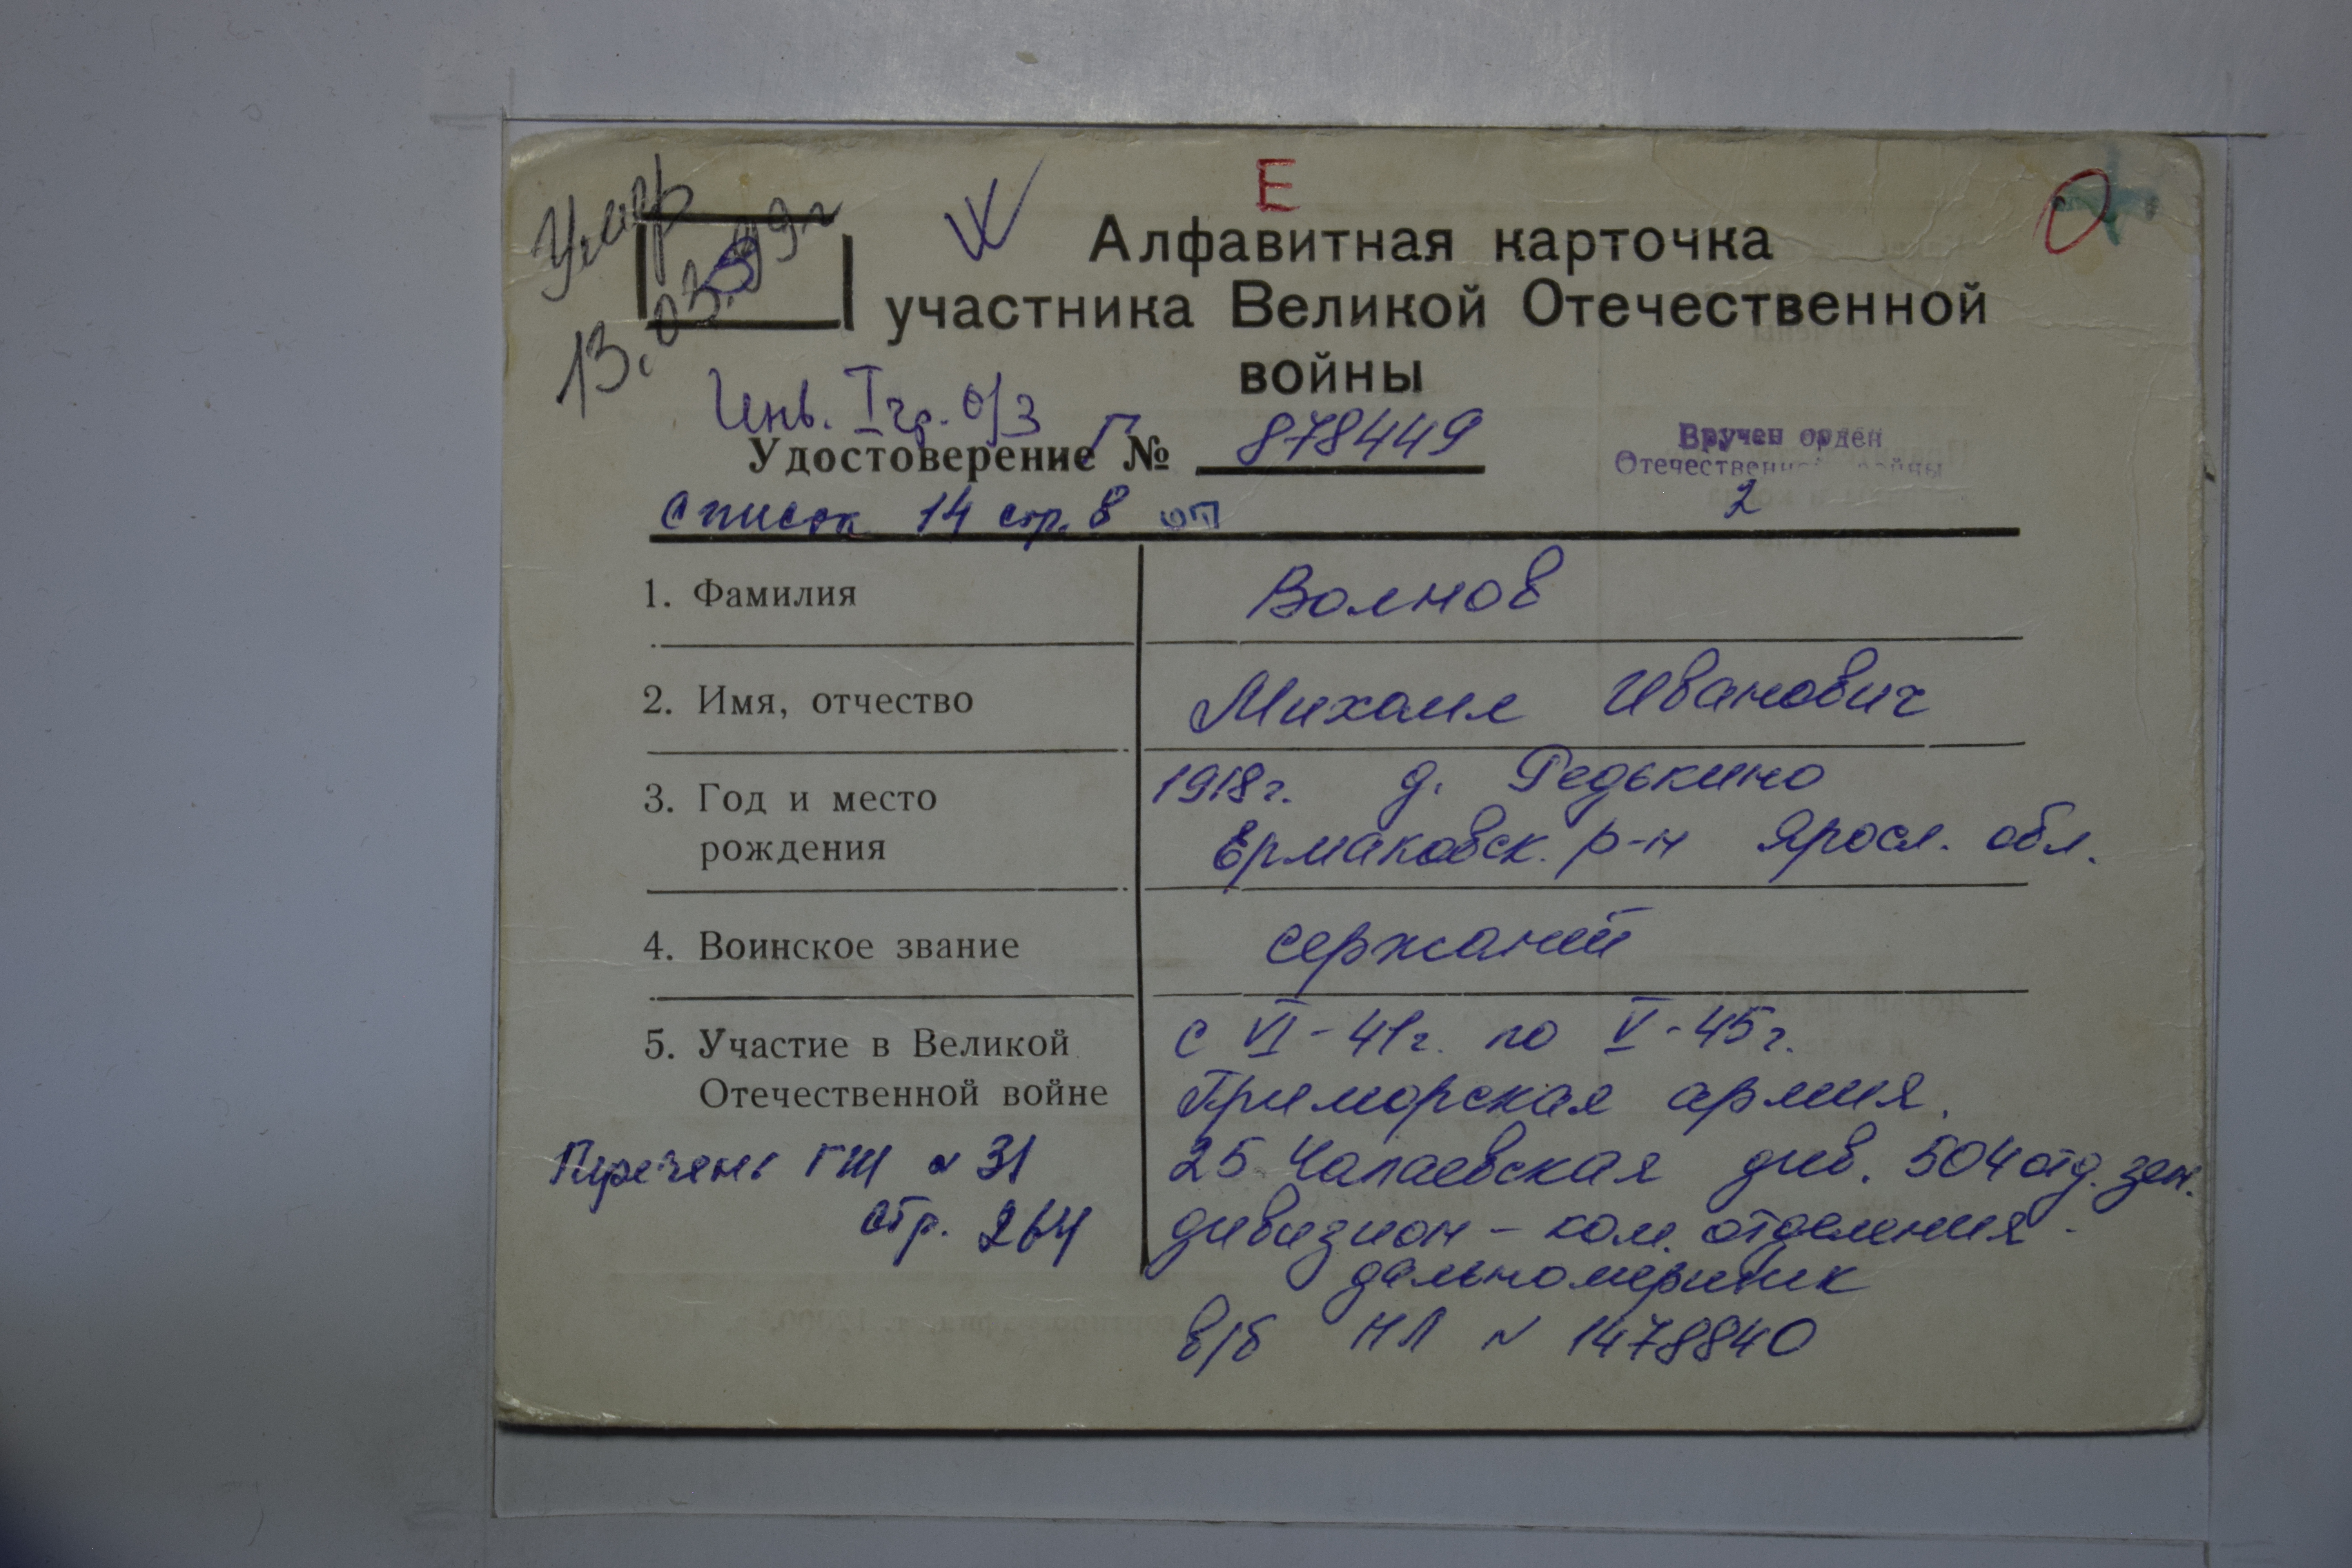 Умер
13.03.99г
Е
Алфавитная карточка
участника Великой Отечественной
войны
Инв. I гр. о/з
Удостоверение Г № 878449
Вручен орден
Отечественной войны
2
список 14 стр. 8
1. Фамилия
Волнов
2. Имя, отчество
Михаил Иванович
3. Год и место
рождения
1918г. д. Редькино
Ермаковск. р-н Яросл. обл.
4. Воинское звание
сержант
5. Участие в Великой
Отечественной войне
с VI-41г. по V-45г.
Приморская армия.
25 Чапаевская див. 504 отд. зен.
дивизион - ком. отделения
дальномерщик
в/б НЛ N 1478840
Перечень ГШ N 31
стр. 264